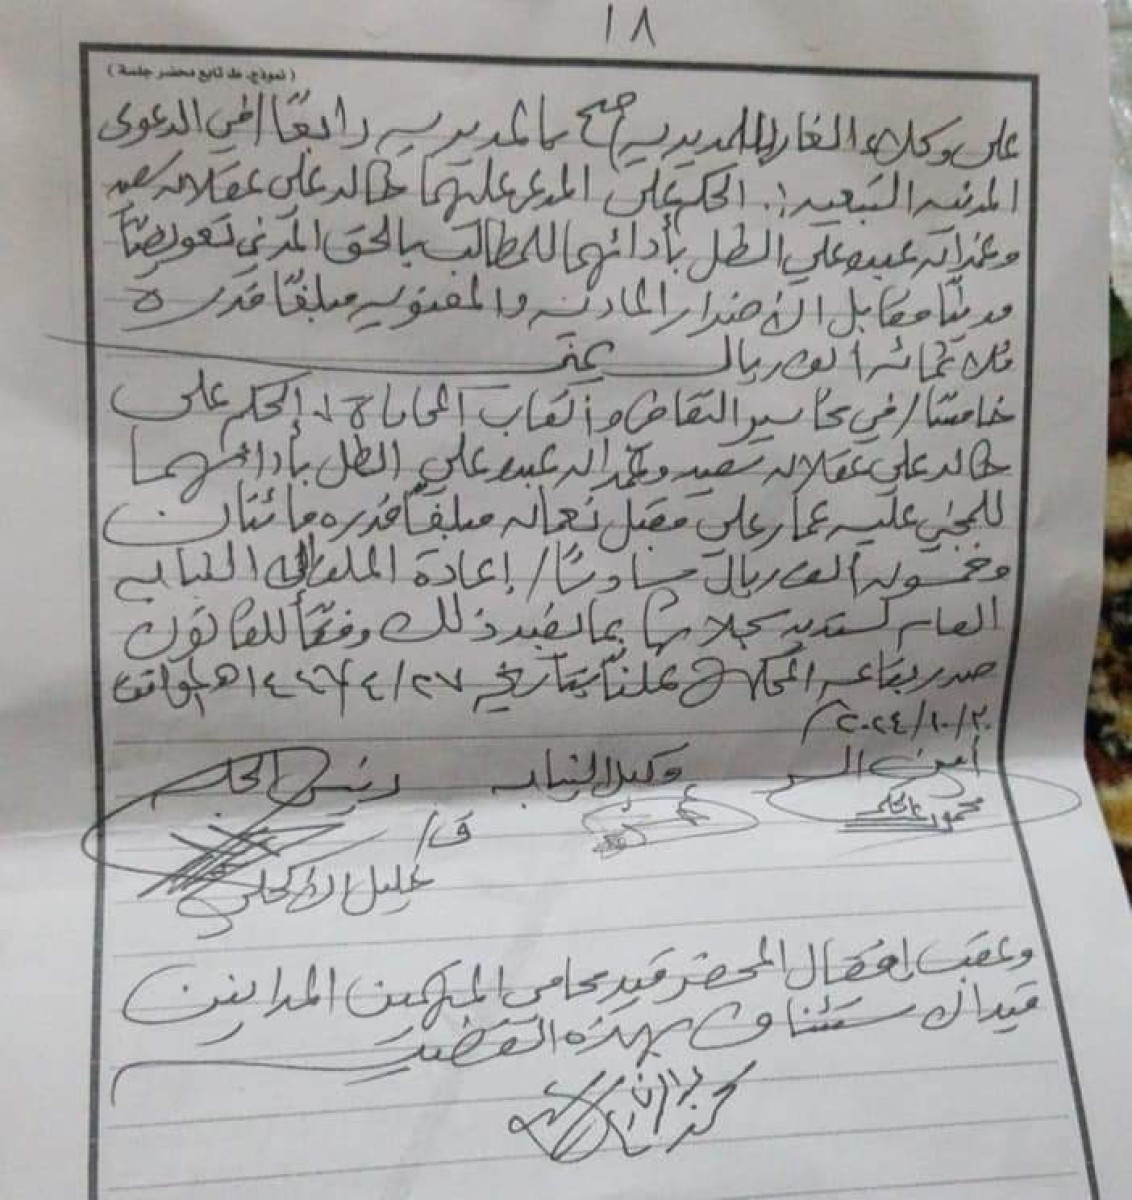 ١٨
( نموذج تابع محضر جلسة )
على وكلاء المدينين رابعاً/ في الدعوى
المدنية التبعية : الحكم على المدعى عليهما خالد علي عقلان سعيد
عبده علي الطل بأدائهما للمطالب بالحق المدني تعويضاً
مدنياً مقابل الأضرار المادية والمعنوية مبلغاً قدره
ثلاثمائة ألف ريال
خامساً/ في خاسير التقاضي وأتعاب المحاماة الحكم على
خالد علي عقلان سعيد عبده علي الطل بأدائهما
للمجني عليه عمار علي مقبل نعمان مبلغاً قدره مائتان
وخمسون ألف ريال سادساً/ إعادة الملف إلى النيابة
العامة سجلاتها بما يفيد ذلك وفقاً للقانون
صدر بقاعة المحكمة علناً بتاريخ ٢٧/ ٤ /١٤٤٦هـ الموافق
٢٠٢٤/١٠/٣٠م
أمين السر وكيل النيابة رئيس المحكمة
محمود
ق/
خليل
وعقب إقفال المحضر قيد محامي المتهمين المدانين
قيد استئناف بهذه القضية